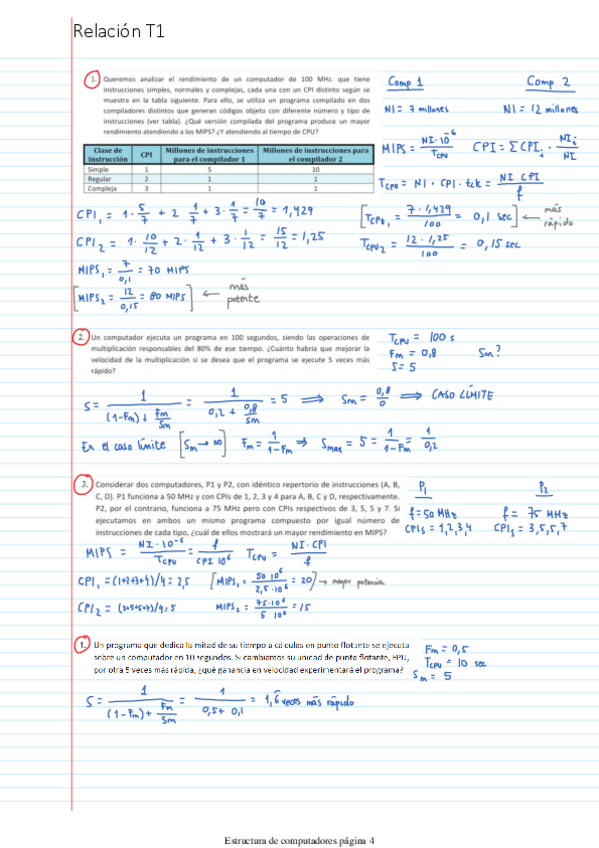 Relación T1
1. Queremos analizar el rendimiento de un computador de 100 MHz. que tiene
instrucciones simples, normales y complejas, cada una con un CPI distinto según se
muestra en la tabla siguiente. Para ello, se utiliza un programa compilado en dos
compiladores distintos que generan códigos objeto con diferente número y tipo de
instrucciones (ver tabla). ¿Qué versión compilada del programa produce un mayor
rendimiento atendiendo a los MIPS? ¿Y atendiendo al tiempo de CPU?
Comp 1 Comp 2
NI = 7 millones NI = 12 millones
MIPS = NI·10^-6 / Tcpu CPI = Σ CPIi · NIi / NI
Tcpu = NI · CPI · tck = NI CPI / f
Clase de instrucción CPI Millones de instrucciones para el compilador 1 Millones de instrucciones para el compilador 2
Simple 1 5 10
Regular 2 1 1
Compleja 3 1 1
CPI1 = 1· 5/7 + 2 1/7 + 3· 1/7 = 10/7 = 1,429
[Tcpu1 = 7·1,429 / 100 = 0,1 sec] ← más rápido
CPI2 = 1· 10/12 + 2· 1/12 + 3· 1/12 = 15/12 = 1,25
Tcpu2 = 12·1,25 / 100 = 0,15 sec
MIPS1 = 7 / 0,1 = 70 MIPS
[MIPS2 = 12 / 0,15 = 80 MIPS] ← más potente
2. Un computador ejecuta un programa en 100 segundos, siendo las operaciones de
multiplicación responsables del 80% de ese tiempo. ¿Cuánto habría que mejorar la
velocidad de la multiplicación si se desea que el programa se ejecute 5 veces más
rápido?
Tcpu = 100 s
Fm = 0,8 Sm?
S = 5
S = 1 / (1-Fm) + Fm/Sm = 1 / 0,2 + 0,8/Sm = 5 ⟹ Sm = 0,8/0 ⟹ CASO LÍMITE
En el caso límite [Sm → ∞] Fm = 1 / 1-Fm ⟹ Smax = 5 = 1 / 1-Fm = 1 / 0,2
3. Considerar dos computadores, P1 y P2, con idéntico repertorio de instrucciones (A, B,
C, D). P1 funciona a 50 MHz y con CPIs de 1, 2, 3 y 4 para A, B, C y D, respectivamente.
P2, por el contrario, funciona a 75 MHz pero con CPIs respectivos de 3, 5, 5 y 7. Si
ejecutamos en ambos un mismo programa compuesto por igual número de
instrucciones de cada tipo, ¿cuál de ellos mostrará un mayor rendimiento en MIPS?
P1 P2
f = 50 MHz f = 75 MHz
CPIs = 1,2,3,4 CPIs = 3,5,5,7
MIPS = NI·10^-6 / Tcpu = f / CPI 10^6 Tcpu = NI·CPI / f
CPI1 = (1+2+3+4)/4 = 2,5 [MIPS1 = 50 10^6 / 2,5·10^6 = 20] → mayor potencia
CPI2 = (3+5+5+7)/4 = 5 MIPS2 = 75·10^6 / 5 10^6 = 15
1. Un programa que dedica la mitad de su tiempo a cálculos en punto flotante se ejecuta
sobre un computador en 10 segundos. Si cambiamos su unidad de punto flotante, FPU,
por otra 5 veces más rápida, ¿qué ganancia en velocidad experimentará el programa?
Fm = 0,5
Tcpu = 10 sec
Sm = 5
S = 1 / (1-Fm) + Fm/Sm = 1 / 0,5 + 0,1 = 1,6 veces más rápido
Estructura de computadores página 4